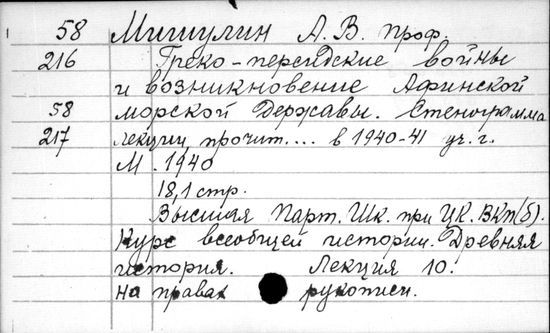 58 Мишулин А. В. проф.
216 Греко-персидские войны
и возникновение Афинской
58 морской Державы. Стенограмма
217 лекции, прочит.... в 1940-41 уч. г.
М. 1940
18,1 стр.
Высшая Парт. Шк. при ЦК. ВКП(б).
Курс всеобщей истории. Древняя
история. Лекция 10.
на правах рукописи.